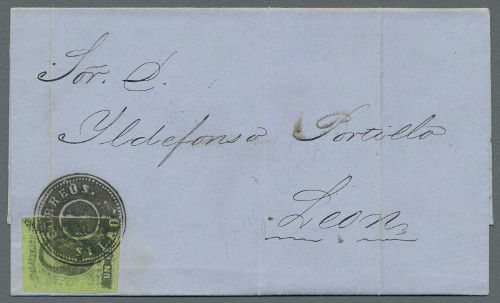 Sor. D.
Yldefonso Portillo
Leon
CORREOS
SILAO
UN